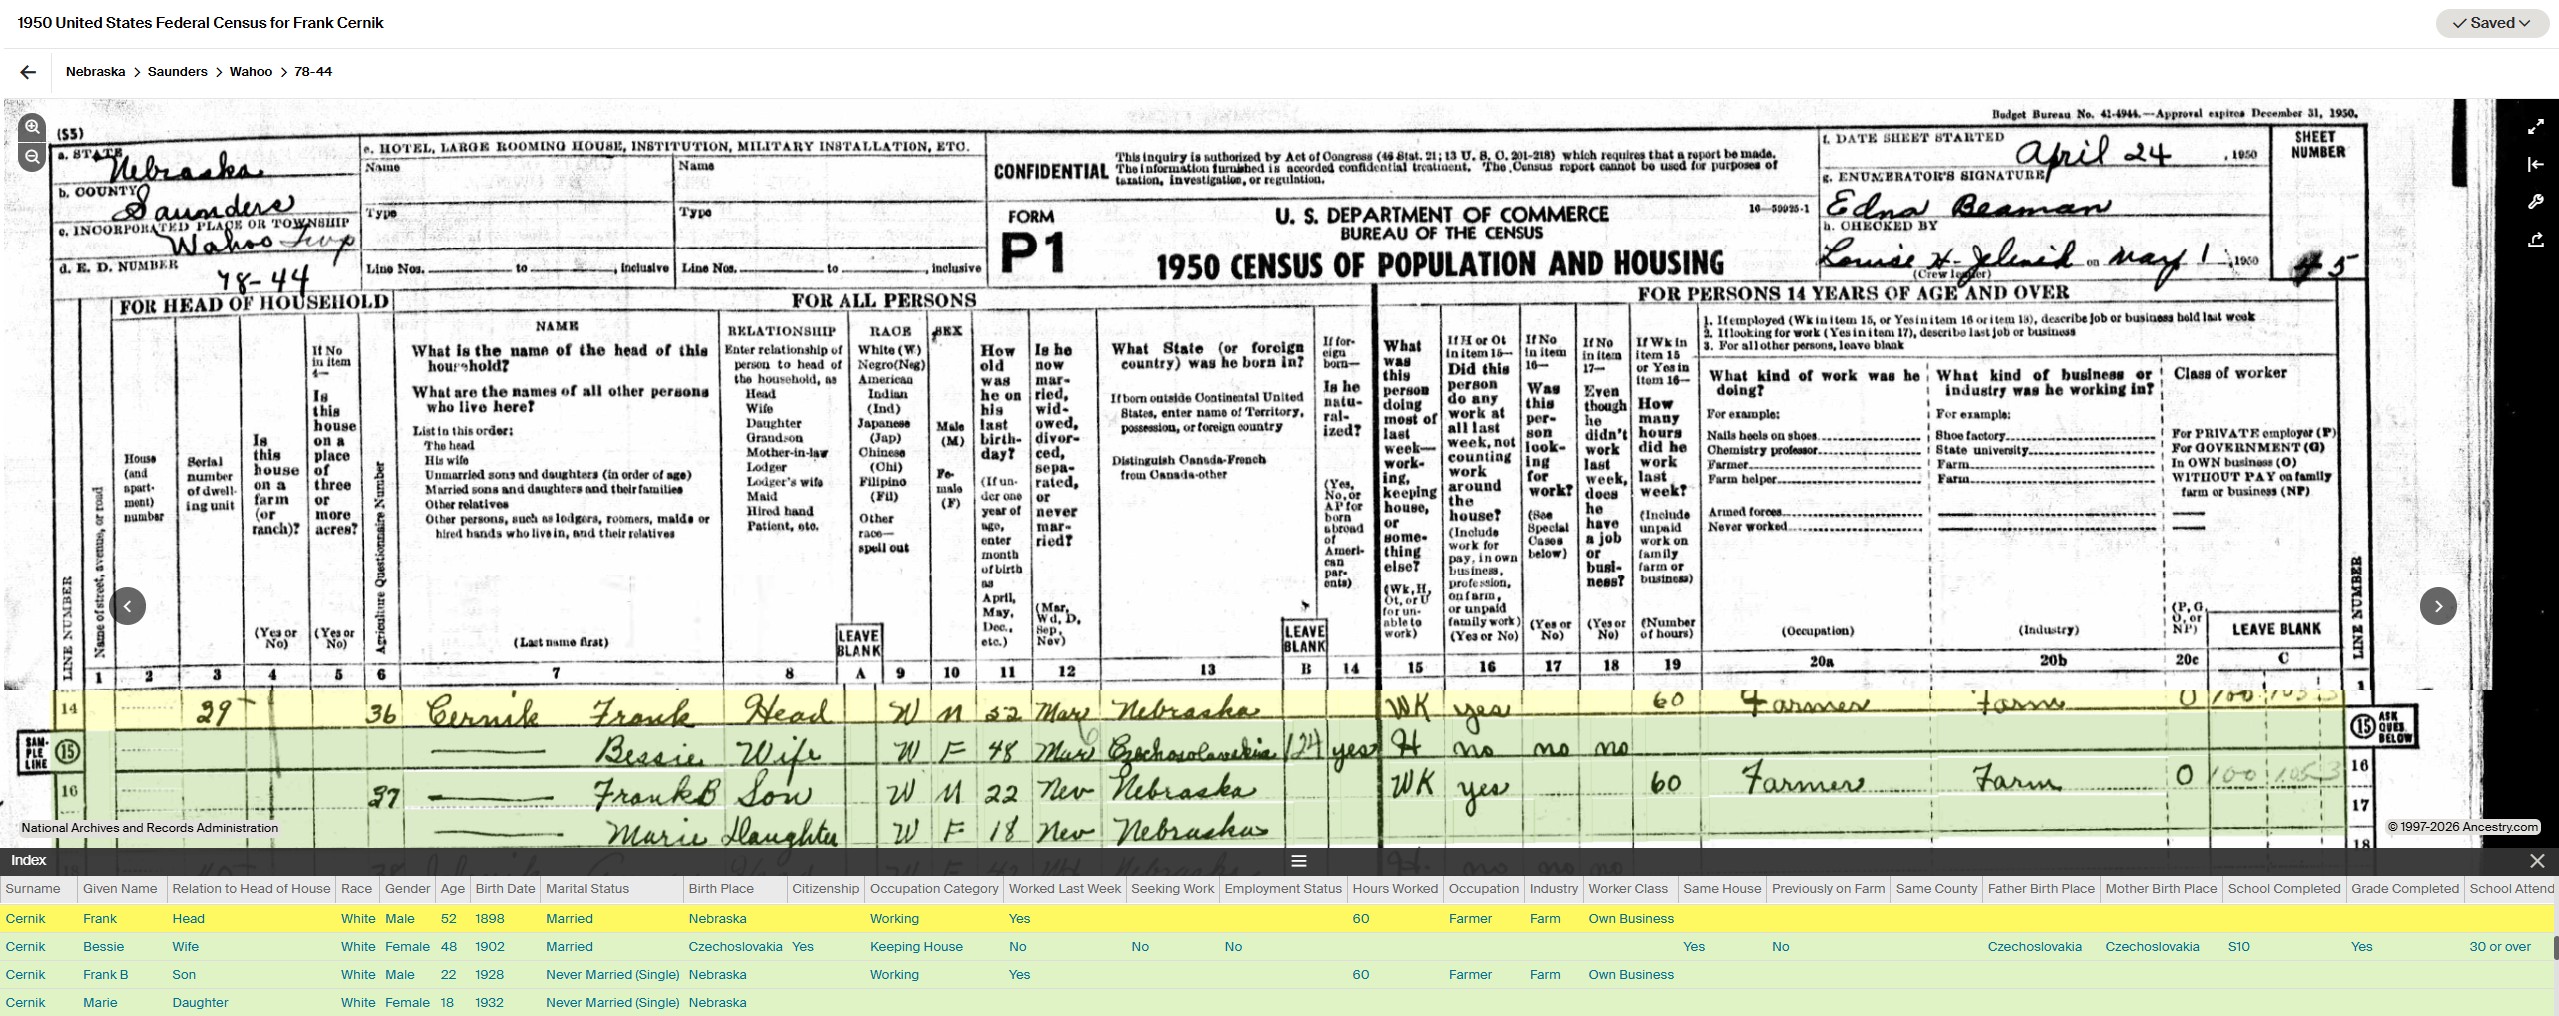 1950 United States Federal Census for Frank Cernik
Saved
Nebraska > Saunders > Wahoo > 78-44
Budget Bureau No. 41-4944.—Approval expires December 31, 1950.
(S5)
a. STATE Nebraska
b. COUNTY Saunders
c. INCORPORATED PLACE OR TOWNSHIP Wahoo Twp
d. E. D. NUMBER 78-44
e. HOTEL, LARGE ROOMING HOUSE, INSTITUTION, MILITARY INSTALLATION, ETC.
Name Name
Type Type
Line Nos. to , inclusive Line Nos. to , inclusive
CONFIDENTIAL
This inquiry is authorized by Act of Congress (46 Stat. 21; 13 U. S. C. 201-218) which requires that a report be made.
The information furnished is accorded confidential treatment. The Census report cannot be used for purposes of
taxation, investigation, or regulation.
FORM
P1
U. S. DEPARTMENT OF COMMERCE
BUREAU OF THE CENSUS
1950 CENSUS OF POPULATION AND HOUSING
16—59925-1
f. DATE SHEET STARTED April 24, 1950
g. ENUMERATOR'S SIGNATURE
Edna Beaman
h. CHECKED BY
Louise H. Jelinek on May 1, 1950
(Crew leader)
SHEET
NUMBER
5
FOR HEAD OF HOUSEHOLD
FOR ALL PERSONS
FOR PERSONS 14 YEARS OF AGE AND OVER
LINE NUMBER
Name of street, avenue, or road
1
House
(and
apart-
ment)
number
2
Serial
number
of dwell-
ing unit
3
Is
this
house
on a
farm
(or
ranch)?
(Yes or
No)
4
If No
in item
4—
Is
this
house
on a
place
of
three
or
more
acres?
(Yes or
No)
5
Agriculture Questionnaire Number
6
NAME
What is the name of the head of this
household?
What are the names of all other persons
who live here?
List in this order:
The head
His wife
Unmarried sons and daughters (in order of age)
Married sons and daughters and their families
Other relatives
Other persons, such as lodgers, roomers, maids or
hired hands who live in, and their relatives
(Last name first)
7
RELATIONSHIP
Enter relationship of
person to head of
the household, as
Head
Wife
Daughter
Grandson
Mother-in-law
Lodger
Lodger's wife
Maid
Hired hand
Patient, etc.
8
LEAVE
BLANK
A
RACE
White (W)
Negro(Neg)
American
Indian
(Ind)
Japanese
(Jap)
Chinese
(Chi)
Filipino
(Fil)
Other
race—
spell out
9
SEX
Male
(M)
Fe-
male
(F)
10
How
old
was
he on
his
last
birth-
day?
(If un-
der one
year of
age,
enter
month
of birth
as
April,
May,
Dec.,
etc.)
11
Is he
now
mar-
ried,
wid-
owed,
divor-
ced,
sepa-
rated,
or
never
mar-
ried?
(Mar,
Wd, D,
Sep,
Nev)
12
What State (or foreign
country) was he born in?
If born outside Continental United
States, enter name of Territory,
possession, or foreign country
Distinguish Canada-French
from Canada-other
13
LEAVE
BLANK
B
If for-
eign
born—
Is he
natu-
ral-
ized?
(Yes,
No, or
AP for
born
abroad
of
Ameri-
can
par-
ents)
14
What
was
this
person
doing
most of
last
week—
work-
ing,
keeping
house,
or
some-
thing
else?
(Wk, H,
Ot, or U
for un-
able to
work)
15
If H or Ot
in item 15—
Did this
person
do any
work at
all last
week, not
counting
work
around
the
house?
(Include
work for
pay, in own
business,
profession,
on farm,
or unpaid
family work)
(Yes or No)
16
If No
in item
16—
Was
this
per-
son
look-
ing
for
work?
(See
Special
Cases
below)
(Yes or
No)
17
If No
in item
17—
Even
though
he
didn't
work
last
week,
does
he
have
a job
or
busi-
ness?
(Yes or
No)
18
If Wk in
item 15
or Yes in
item 16—
How
many
hours
did he
work
last
week?
(Include
unpaid
work on
family
farm or
business)
(Number
of hours)
19
1. If employed (Wk in item 15, or Yes in item 16 or item 18), describe job or business held last week
2. If looking for work (Yes in item 17), describe last job or business
3. For all other persons, leave blank
What kind of work was he
doing?
For example:
Nails heels on shoes
Chemistry professor
Farmer
Farm helper
Armed forces
Never worked
(Occupation)
20a
What kind of business or
industry was he working in?
For example:
Shoe factory
State university
Farm
Farm
(Industry)
20b
Class of worker
For PRIVATE employer (P)
For GOVERNMENT (G)
In OWN business (O)
WITHOUT PAY on family
farm or business (NP)
(P, G,
O, or
NP)
20c
LEAVE BLANK
C
LINE NUMBER
14 29 36 Cernik Frank Head W M 52 Mar Nebraska WK yes 60 Farmer Farm O 100 105 3
SAM-
PLE
LINE
15 Bessie Wife W F 48 Mar Czechoslovakia 124 yes H no no no 15
ASK
QUES.
BELOW
16 37 Frank B Son W M 22 Nev Nebraska WK yes 60 Farmer Farm O 100 105 3 16
Marie Daughter W F 18 Nev Nebraska 17
18
National Archives and Records Administration
© 1997-2026 Ancestry.com
Index
Surname Given Name Relation to Head of House Race Gender Age Birth Date Marital Status Birth Place Citizenship Occupation Category Worked Last Week Seeking Work Employment Status Hours Worked Occupation Industry Worker Class Same House Previously on Farm Same County Father Birth Place Mother Birth Place School Completed Grade Completed School Attend
Cernik Frank Head White Male 52 1898 Married Nebraska Working Yes 60 Farmer Farm Own Business
Cernik Bessie Wife White Female 48 1902 Married Czechoslovakia Yes Keeping House No No No Yes No Czechoslovakia Czechoslovakia S10 Yes 30 or over
Cernik Frank B Son White Male 22 1928 Never Married (Single) Nebraska Working Yes 60 Farmer Farm Own Business
Cernik Marie Daughter White Female 18 1932 Never Married (Single) Nebraska